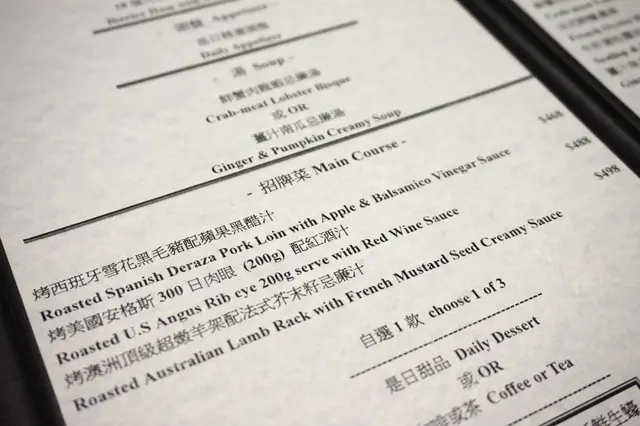 Iberico Ham
頭盤 Appetizer -
是日精選頭盤
Daily Appetizer
- 湯 Soup -
鮮蟹肉龍蝦忌廉湯
Crab-meat Lobster Bisque
或 OR
薑汁南瓜忌廉湯
Ginger & Pumpkin Creamy Soup
- 招牌菜 Main Course -
烤西班牙雪花黑毛豬配蘋果黑醋汁 $468
Roasted Spanish Deraza Pork Loin with Apple & Balsamico Vinegar Sauce
烤美國安格斯 300 日肉眼 (200g) 配紅酒汁 $488
Roasted U.S Angus Rib eye 200g serve with Red Wine Sauce
烤澳洲頂級超嫩羊架配法式芥末籽忌廉汁 $498
Roasted Australian Lamb Rack with French Mustard Seed Creamy Sauce
自選 1 款 choose 1 of 3
是日甜品 Daily Dessert
或 OR
咖啡或茶 Coffee or Tea